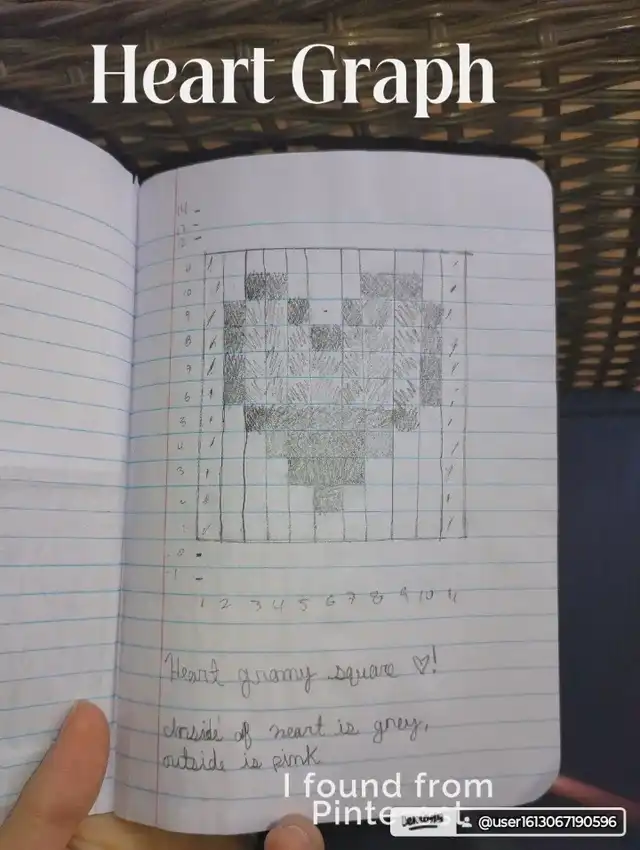 Heart Graph
14 -
13 -
12 -
11
10
9
8
7
6
5
4
3
2
1
0 -
-1 -
1 2 3 4 5 6 7 8 9 10 11
Heart granny square ♡!
Inside of heart is grey,
outside is pink
I found from
Pinterest
@user1613067190596